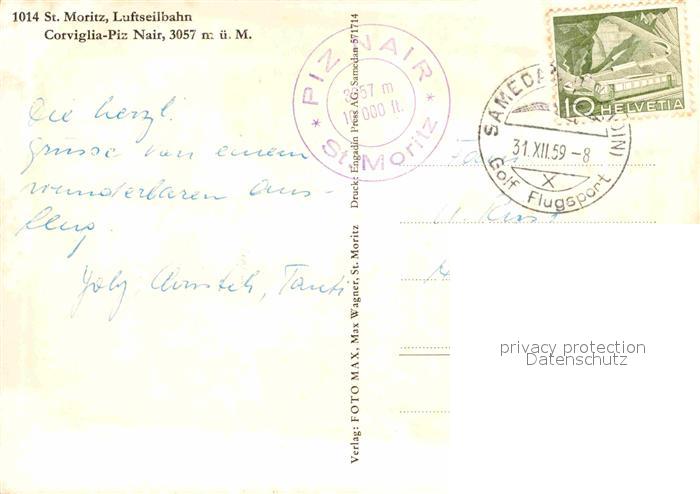 1014 St. Moritz, Luftseilbahn
Corviglia-Piz Nair, 3057 m ü. M.
Die herzl.
Grüsse von einem
wunderbaren Aus-
flug.
PIZ NAIR
3057 m
10 000 ft.
St. Moritz
Verlag: FOTO MAX, Max Wagner, St. Moritz Druck: Engadin Press AG, Samedan 571714
10 HELVETIA
SAMEDAN
31.XII.59-8
Golf Flugsport
Fam.
privacy protection
Datenschutz